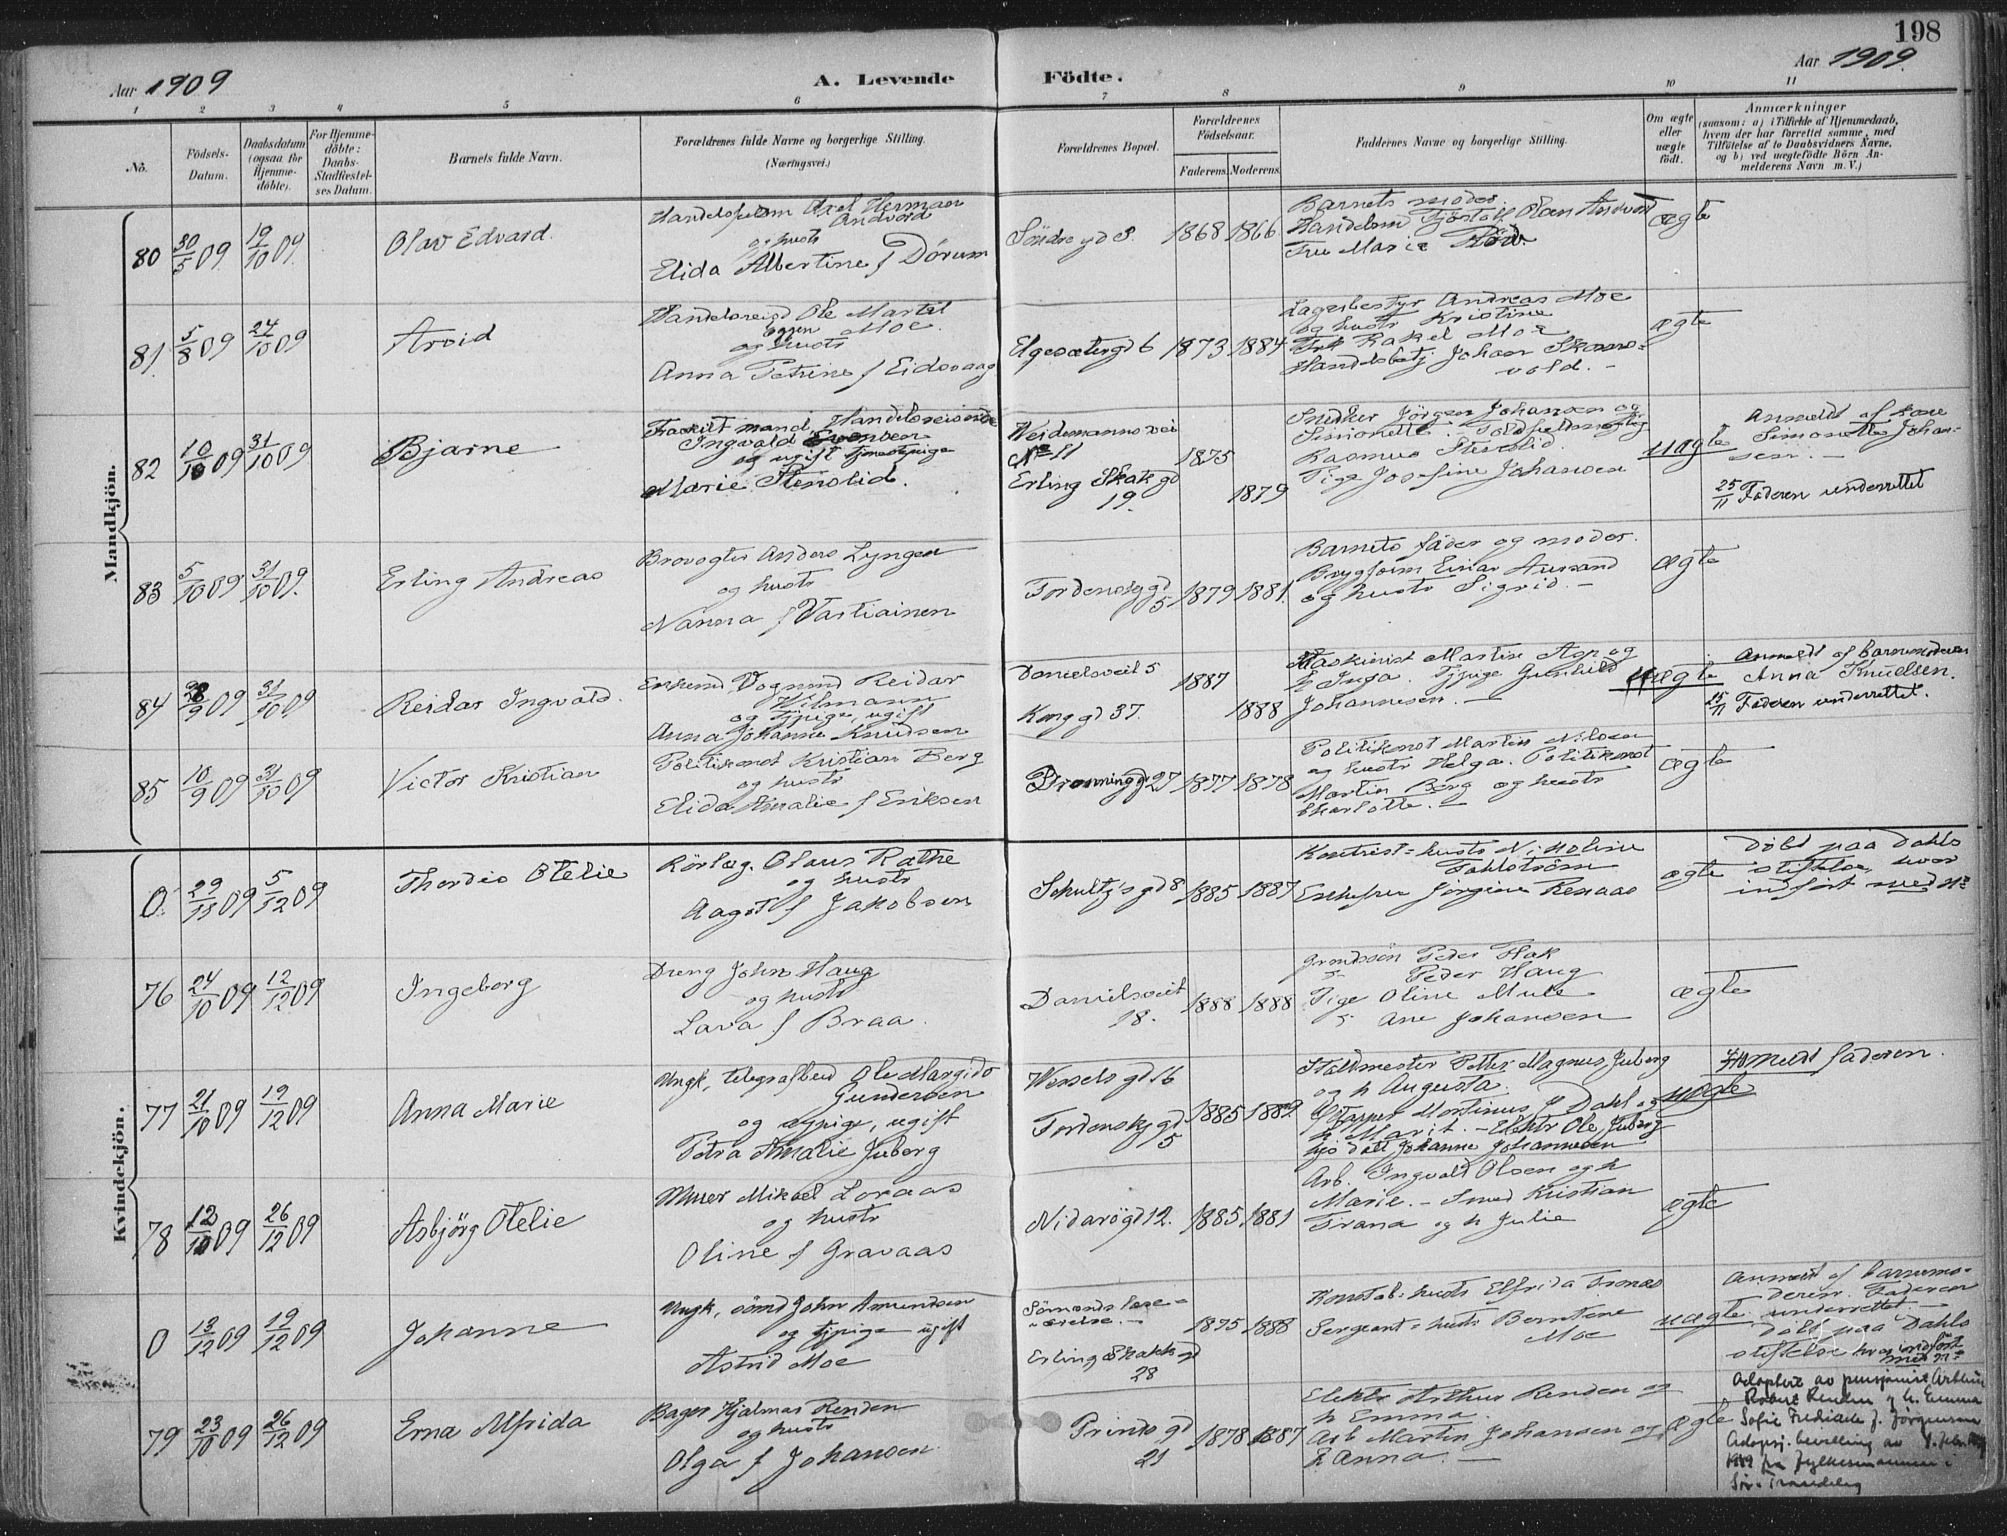 198
Aar 1909
A. Levende Födte.
Aar 1909.
1 2 3 4 5 6 7 8 9 10 11
No.
Födsels-Datum.
Daabsdatum (ogsaa for Hjemme-döbte).
For Hjemme-döbte: Daabs-Stadfæstel-ses Datum.
Barnets fulde Navn.
Forældrenes fulde Navne og borgerlige Stilling. (Næringsvei.)
Forældrenes Bopæl.
Forældrenes Födselsaar.
Faderens. Moderens.
Faddernes Navne og borgerlige Stilling.
Om ægte eller uægte födt.
Anmærkninger
(saasom: a) i Tilfælde af Hjemmedaab, hvem der har forrettet samme, med Tilföielse af to Daabsvidners Navne, og b) ved uægtefödte Börn An-melderens Navn m. V.)
Mandkjön.
80 30/5 09 19/10 09 Olav Edvard.
Axel Herman Andvord
og hustr
Elida Albertine f Dørum
Søndre gd 1868 1866
Barnets moder.
Fru Marie
ægte
81. 5/8 09 24/10 09 Arvid
Handelsreisd Ole Martel
Moe.
og hustr
Anna Petrine f Eidsvaag
Elgesætergd 6 1873 1884
Lagerbestyr Andreas Moe
og hustr Kristine
Frk Rakel Moe
Handelsbetj Johan
ægte
82 10/10 09 31/10 09 Bjarne
Fraskilt mand, Handelsreisende
Ingvald Evensen
og ugift tjenestepige
Marie Stenslid.
Weidemannsvei
No 11
Erling Skak gd
19.
1875
1879
Snedker Jörgen Johansen og
Simonette.
Rasmus Stenslid.
Pige Josefine Johansen
uægte
Anmeldt af kone
Simonette Johan-
sen.
25/11 Faderen underrettet
83 5/10 09 31/10 09. Erling Andreas
Brovogter Anders Lyngen
og hustr
Nanna f Vastiainen
Tordenskg gd
5 1879 1881.
Barnets fader og moder.
Einar Aursand
og hustr Sigrid.
ægte
84 09 31/10 09 Reidar Ingvald.
Reidar
og tjpige, ugift
Anna Johanne Knudsen
Danielsveit 5
Kong gd 37.
1887
1888
Maskinist Martin Age og
h Inga. Tjpige Gunhild
Johannesen.
uægte
Anmeldt af barnemoderen
Anna Knudsen.
25/11 Faderen underrettet.
85 10/9 09 31/10 09 Victor Kristian
Politikonst Kristian Berg
og hustr
Elida Amalie f Eriksen
Dronning gd 27 1877 1878
Politikonst Martin Nilsen
og hustr Helga. Politikonst
Martin Berg og hustr
Charlotte.
ægte
Kvindekjön.
0. 29/11 09 5/12 09 Thordis Otelie
Rörlæg. Olaus Rathe
og hustr
Aagot f Jakobsen
Schultz's gd 8 1885 1887
hustr Nikoline
Fahlström
Jörgine Renaas
ægte
Döbt paa Dahls
stiftelse, hvor
indfört med No
76 24/10 09 12/12 09 Ingeborg
Dreng John Haug
og hustr
Lava f Braa.
Danielsveit
18. 1888 1888
Peder Hak
Peder Haug
Pige Oline Mule
Ane Johansen
ægte
77 21/10 09 19/12 09 Anna Marie
Ungk, telegrafbud Ole Margido
Gundersen
og tjpige, ugift
Petra Amalie Juberg
Wessels gd 16
Tordenskg gd
5
1885 1889.
Staldmester Petter Magnus Juberg
og h Augusta.
Martinus Dahl og
h Marit. – Elektr Ole Juberg
Johanne Johannesen
uægte
Anmeldt faderen.
78 12/10 09 26/12 09 Asbjörg Otelie
Murer Mikael Loraas
og hustr
Oline f Gravaas
Nidarögd 12. 1885 1881
Arb. Ingvald Olsen og h
Marie. – Smed Kristian
Trana og h Julie
ægte
0 13/12 09 19/12 09 Johanne
Ungk, sömd John Amundsen
og tjpige ugift
Astrid Moe
Sömands læse-
værelse.
Erling Skakks gd
28
1875 1888
Konstab. hustr Elfrida Tronas
Sergeant = hustr Berntine
Moe
uægte
Anmeldt af barnemo-
deren. Faderen
underrettet.
Döbt paa Dahls
stiftelse hvor indfört
med No
79 23/10 09 26/12 09 Erna Alfrida
Bager Hjalmar Renden
og hustr
Olga f Johansen
Prinds gd
21 1878 1887
Elektr Arthur Renden og
h Emma.
Arb Martin Johansen og
h Anna.
ægte
Adoptert av pensjonist Arthur
Robert Renden og h. Emma
Sofie Fredrikke f. Jörgensen
Adopsj. bevilling av
fra fylkesmannen i
Sör-Tröndelag